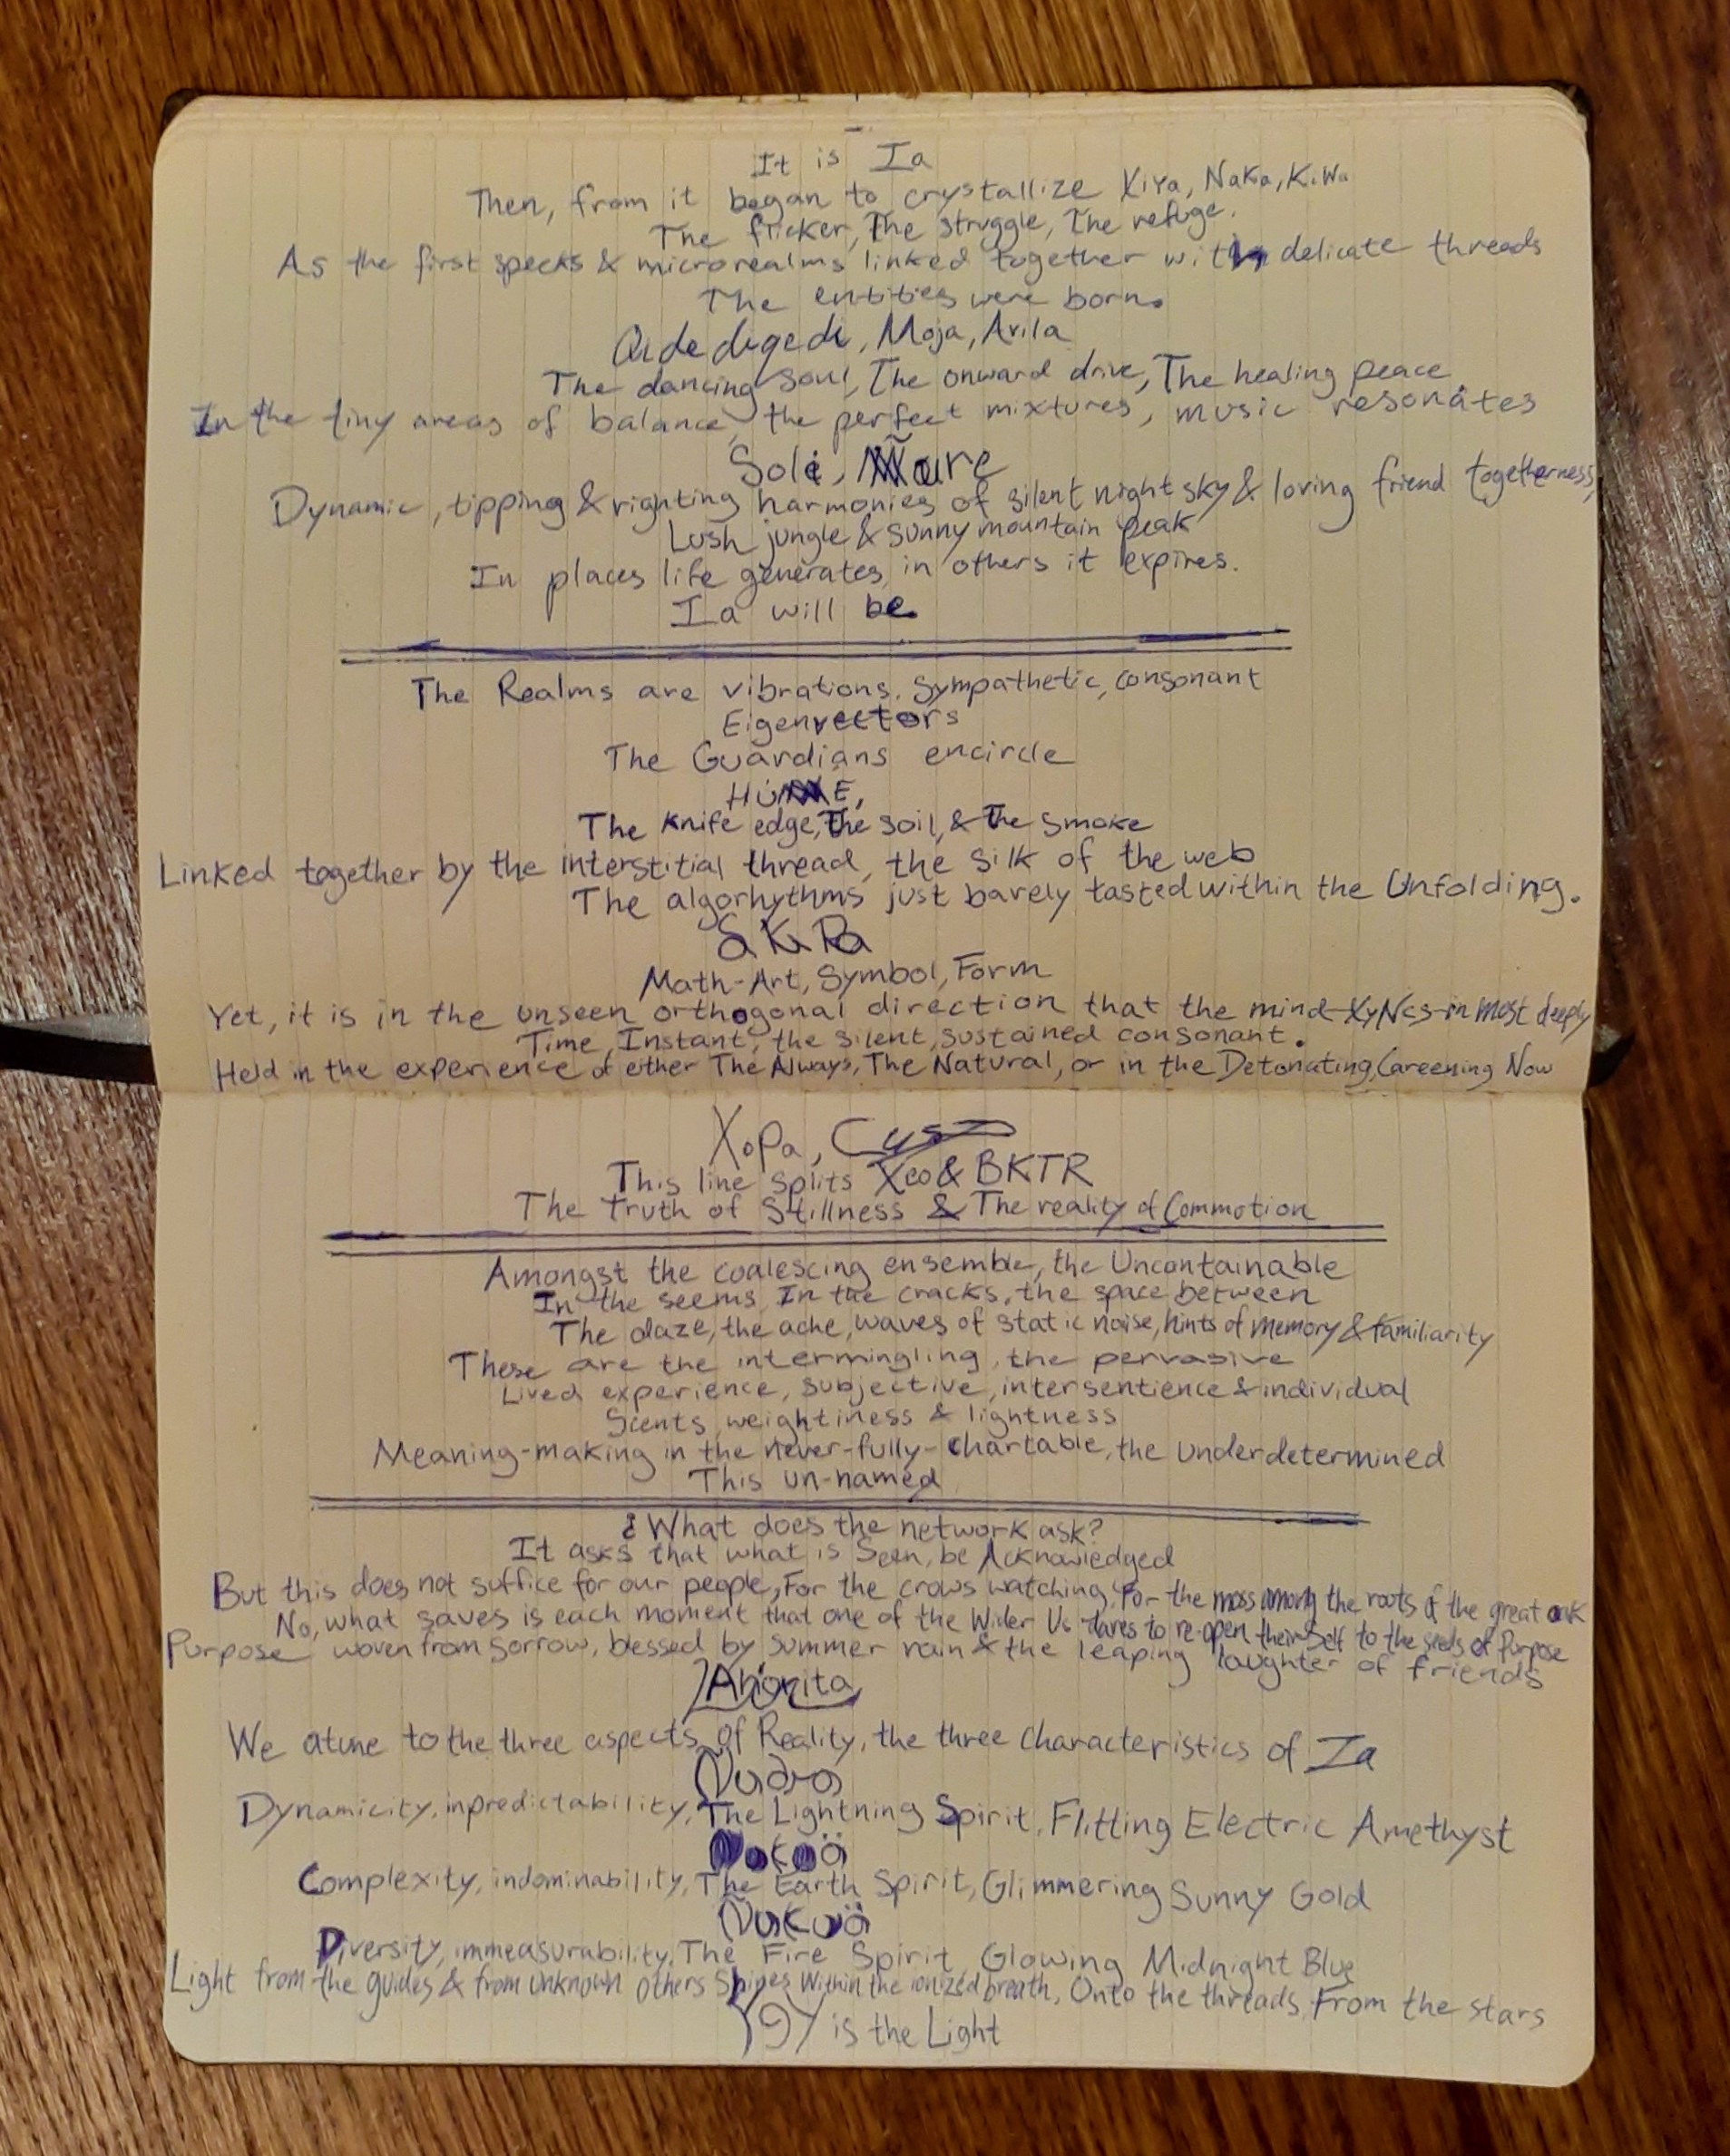 It is Ia
Then, from it began to crystallize XiYa, NaKa, KiWa
The flicker, The struggle, The refuge.
As the first specks & microrealms linked together with delicate threads
The entities were born.
Moja, Avila
The dancing soul, The onward drive, The healing peace
In the tiny areas of balance, the perfect mixtures, music resonates
Dynamic, tipping & righting harmonies of silent night sky & loving friend togetherness,
Lush jungle & sunny mountain peak
In places life generates, in others it expires.
Ia will be
The Realms are vibrations. Sympathetic, consonant
Eigenvectors
The Guardians encircle
The knife edge, The soil, & The smoke
Linked together by the interstitial thread, the silk of the web
The algorhythms just barely tasted within the Unfolding.
Math-Art, Symbol, Form
Yet, it is in the unseen orthogonal direction that the mind-XyNcs-in most deeply
Time, Instant, the silent, sustained consonant.
Held in the experience of either The Always, The Natural, or in the Detonating, Careening Now
XoPa,
This line splits Xeo & BKTR
The Truth of Stillness & The reality of Commotion
Amongst the coalescing ensemble, the Uncontainable
In the seems, In the cracks, the space between
The daze, the ache, waves of static noise, hints of memory & familiarity
These are the intermingling, the pervasive
Lived experience, subjective, intersentience & individual
Scents, weightiness & lightness
Meaning-making in the never-fully-chartable, the underdetermined
This un-named
¿What does the network ask?
It asks that what is Seen, be Acknowledged
But this does not suffice for our people, For the crows watching, For the moss among the roots of the great oak
No, what saves is each moment that one of the Wider Us dares to re-open theirself to the seeds of Purpose
Purpose woven from sorrow, blessed by summer rain & the leaping laughter of friends
We atune to the three aspects of Reality, the three characteristics of Ia
Dynamicity, inpredictability, The Lightning Spirit, Flitting Electric Amethyst
Complexity, indominability, The Earth Spirit, Glimmering Sunny Gold
Diversity, immeasurability, The Fire Spirit, Glowing Midnight Blue
Light from the guides & from unknown others Shines Within the ionized breath, Onto the threads, From the stars
is the Light